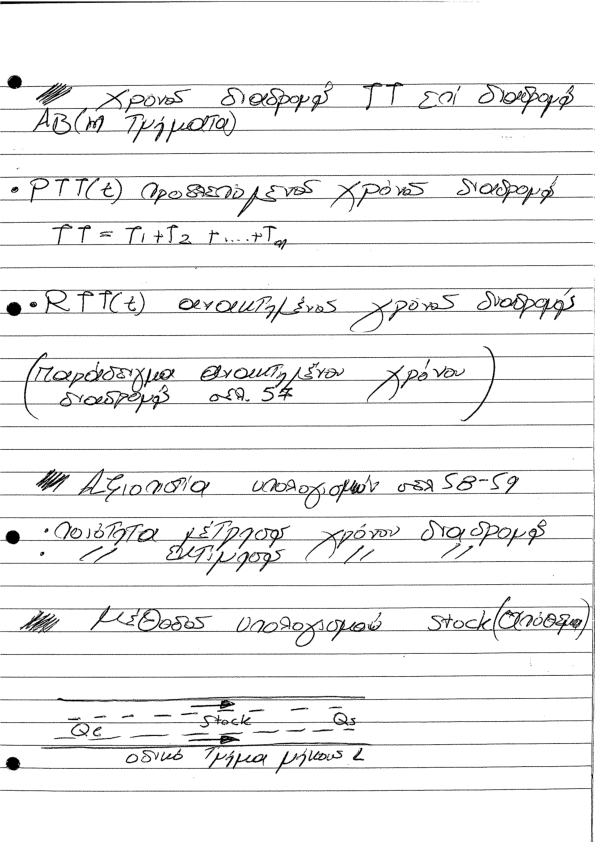 Χρόνος διαδρομής ΤΤ επί διαδρομής
ΑΒ (m Τμήματα)
• PTT(t) προβλεπόμενος χρόνος διαδρομής
TT = T1 + T2 + .... + Tm
• RTT(t) ανακτημένος χρόνος διαδρομής
(Παράδειγμα ανακτημένου χρόνου
διαδρομής σελ. 57)
Αξιοπιστία υπολογισμών σελ 58-59
• Ποιότητα μέτρησης χρόνου διαδρομής
• // εκτίμησης // //
Μέθοδος υπολογισμού stock (απόθεμα)
Qe Stock Qs
οδικό Τμήμα μήκους L